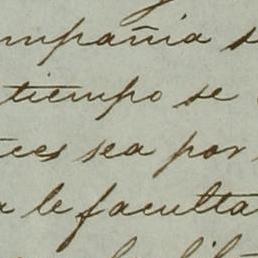 ompañia s
tiempo se
ces sea por
a le faculta